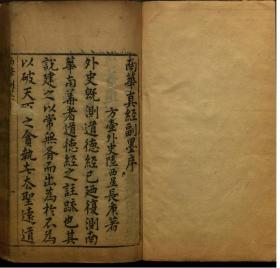 南華真經副墨序
方壺外史陸西星長庚著
外史既測道德經已廼復測南
華南華者道德經之註疏也其
說建之以常無有而出為於不為
以破天下之